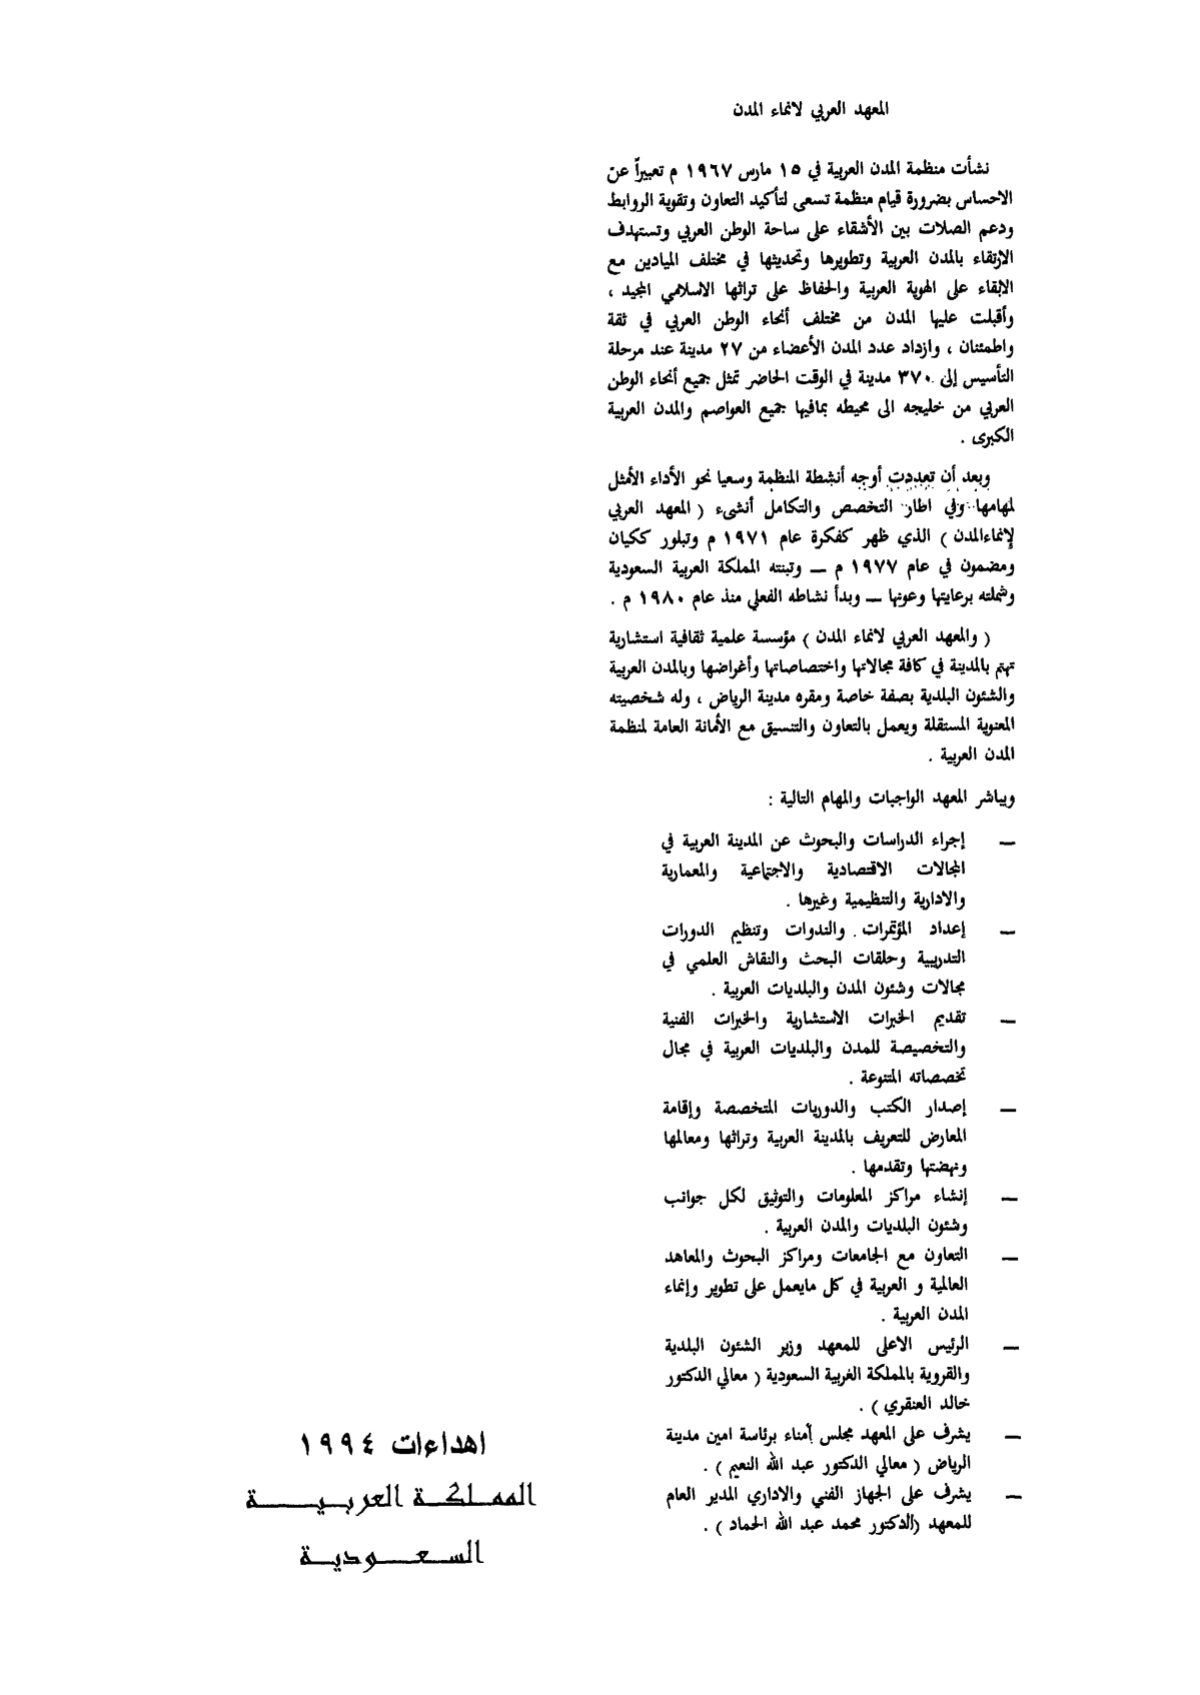 المعهد العربي لانماء المدن
نشأت منظمة المدن العربية في ١٥ مارس ١٩٦٧ م تعبيراً عن
الاحساس بضرورة قيام منظمة تسعى لتأكيد التعاون وتقوية الروابط
ودعم الصلات بين الأشقاء على ساحة الوطن العربي وتستهدف
الارتقاء بالمدن العربية وتطويرها وتحديثها في مختلف الميادين مع
الابقاء على الهوية العربية والحفاظ على تراثها الاسلامي المجيد ،
وأقبلت عليها المدن من مختلف أنحاء الوطن العربي في ثقة
واطمئنان ، وازداد عدد المدن الأعضاء من ٢٧ مدينة عند مرحلة
التأسيس إلى ٣٧٠ مدينة في الوقت الحاضر تمثل جميع أنحاء الوطن
العربي من خليجه الى محيطه بمافيها جميع العواصم والمدن العربية
الكبرى .
وبعد أن تعددت أوجه أنشطة المنظمة وسعيا نحو الأداء الأمثل
لمهامها وفي اطار التخصص والتكامل أنشىء ( المعهد العربي
لإنماءالمدن ) الذي ظهر كفكرة عام ١٩٧١ م وتبلور ككيان
ومضمون في عام ١٩٧٧ م — وتبنته المملكة العربية السعودية
وشملته برعايتها وعونها — وبدأ نشاطه الفعلي منذ عام ١٩٨٠ م .
( والمعهد العربي لانماء المدن ) مؤسسة علمية ثقافية استشارية
تهتم بالمدينة في كافة مجالاتها واختصاصاتها وأغراضها وبالمدن العربية
والشئون البلدية بصفة خاصة ومقره مدينة الرياض ، وله شخصيته
المعنوية المستقلة ويعمل بالتعاون والتنسيق مع الأمانة العامة لمنظمة
المدن العربية .
ويباشر المعهد الواجبات والمهام التالية :
— إجراء الدراسات والبحوث عن المدينة العربية في
المجالات الاقتصادية والاجتماعية والمعمارية
والادارية والتنظيمية وغيرها .
— إعداد المؤتمرات . والندوات وتنظيم الدورات
التدريبية وحلقات البحث والنقاش العلمي في
مجالات وشئون المدن والبلديات العربية .
— تقديم الخبرات الاستشارية والخبرات الفنية
والتخصيصة للمدن والبلديات العربية في مجال
تخصصاته المتنوعة .
— إصدار الكتب والدوريات المتخصصة وإقامة
المعارض للتعريف بالمدينة العربية وتراثها ومعالمها
ونهضتها وتقدمها .
— إنشاء مراكز المعلومات والتوثيق لكل جوانب
وشئون البلديات والمدن العربية .
— التعاون مع الجامعات ومراكز البحوث والمعاهد
العالمية و العربية في كل مايعمل على تطوير وإنماء
المدن العربية .
— الرئيس الاعلى للمعهد وزير الشئون البلدية
والقروية بالمملكة الغربية السعودية ( معالي الدكتور
خالد العنقري ) .
— يشرف على المعهد مجلس أمناء برئاسة امين مدينة
الرياض ( معالي الدكتور عبد الله النعيم ) .
— يشرف على الجهاز الفني والاداري المدير العام
للمعهد (الدكتور محمد عبد الله الحماد ) .
اهداءات ١٩٩٤
المملكة العربية
السعودية